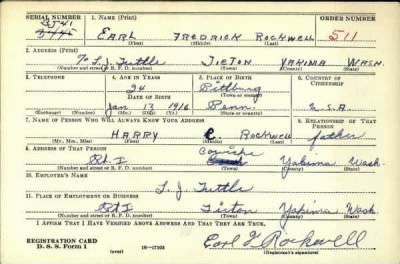 SERIAL NUMBER 1. NAME (Print) ORDER NUMBER
EARL FREDRICK ROCKWELL 511
(First) (Middle) (Last)
2. ADDRESS (Print)
% L J Tuttle TIETON YAKIMA WASH.
(Number and street or R. F. D. number) (Town) (County) (State)
3. TELEPHONE 4. AGE IN YEARS 5. PLACE OF BIRTH 6. COUNTRY OF CITIZENSHIP
24 Pittburg
DATE OF BIRTH (Town or county)
Jan 13 1916 Penn. U.S.A.
(Exchange) (Number) (Mo.) (Day) (Yr.) (State or country)
7. NAME OF PERSON WHO WILL ALWAYS KNOW YOUR ADDRESS 8. RELATIONSHIP OF THAT PERSON
HARRY C. ROCKWELL father
(Mr., Mrs., Miss) (First) (Middle) (Last)
9. ADDRESS OF THAT PERSON Cowiche
Rt. 1 Yakima Wash.
(Number and street or R. F. D. number) (Town) (County) (State)
10. EMPLOYER'S NAME
L. J. Tuttle
11. PLACE OF EMPLOYMENT OR BUSINESS
Rt 1 Tieton Yakima Wash.
(Number and street or R. F. D. number) (Town) (County) (State)
I AFFIRM THAT I HAVE VERIFIED ABOVE ANSWERS AND THAT THEY ARE TRUE.
REGISTRATION CARD
D. S. S. Form 1 (over) 16—17105 Earl F Rockwell
(Registrant's signature)